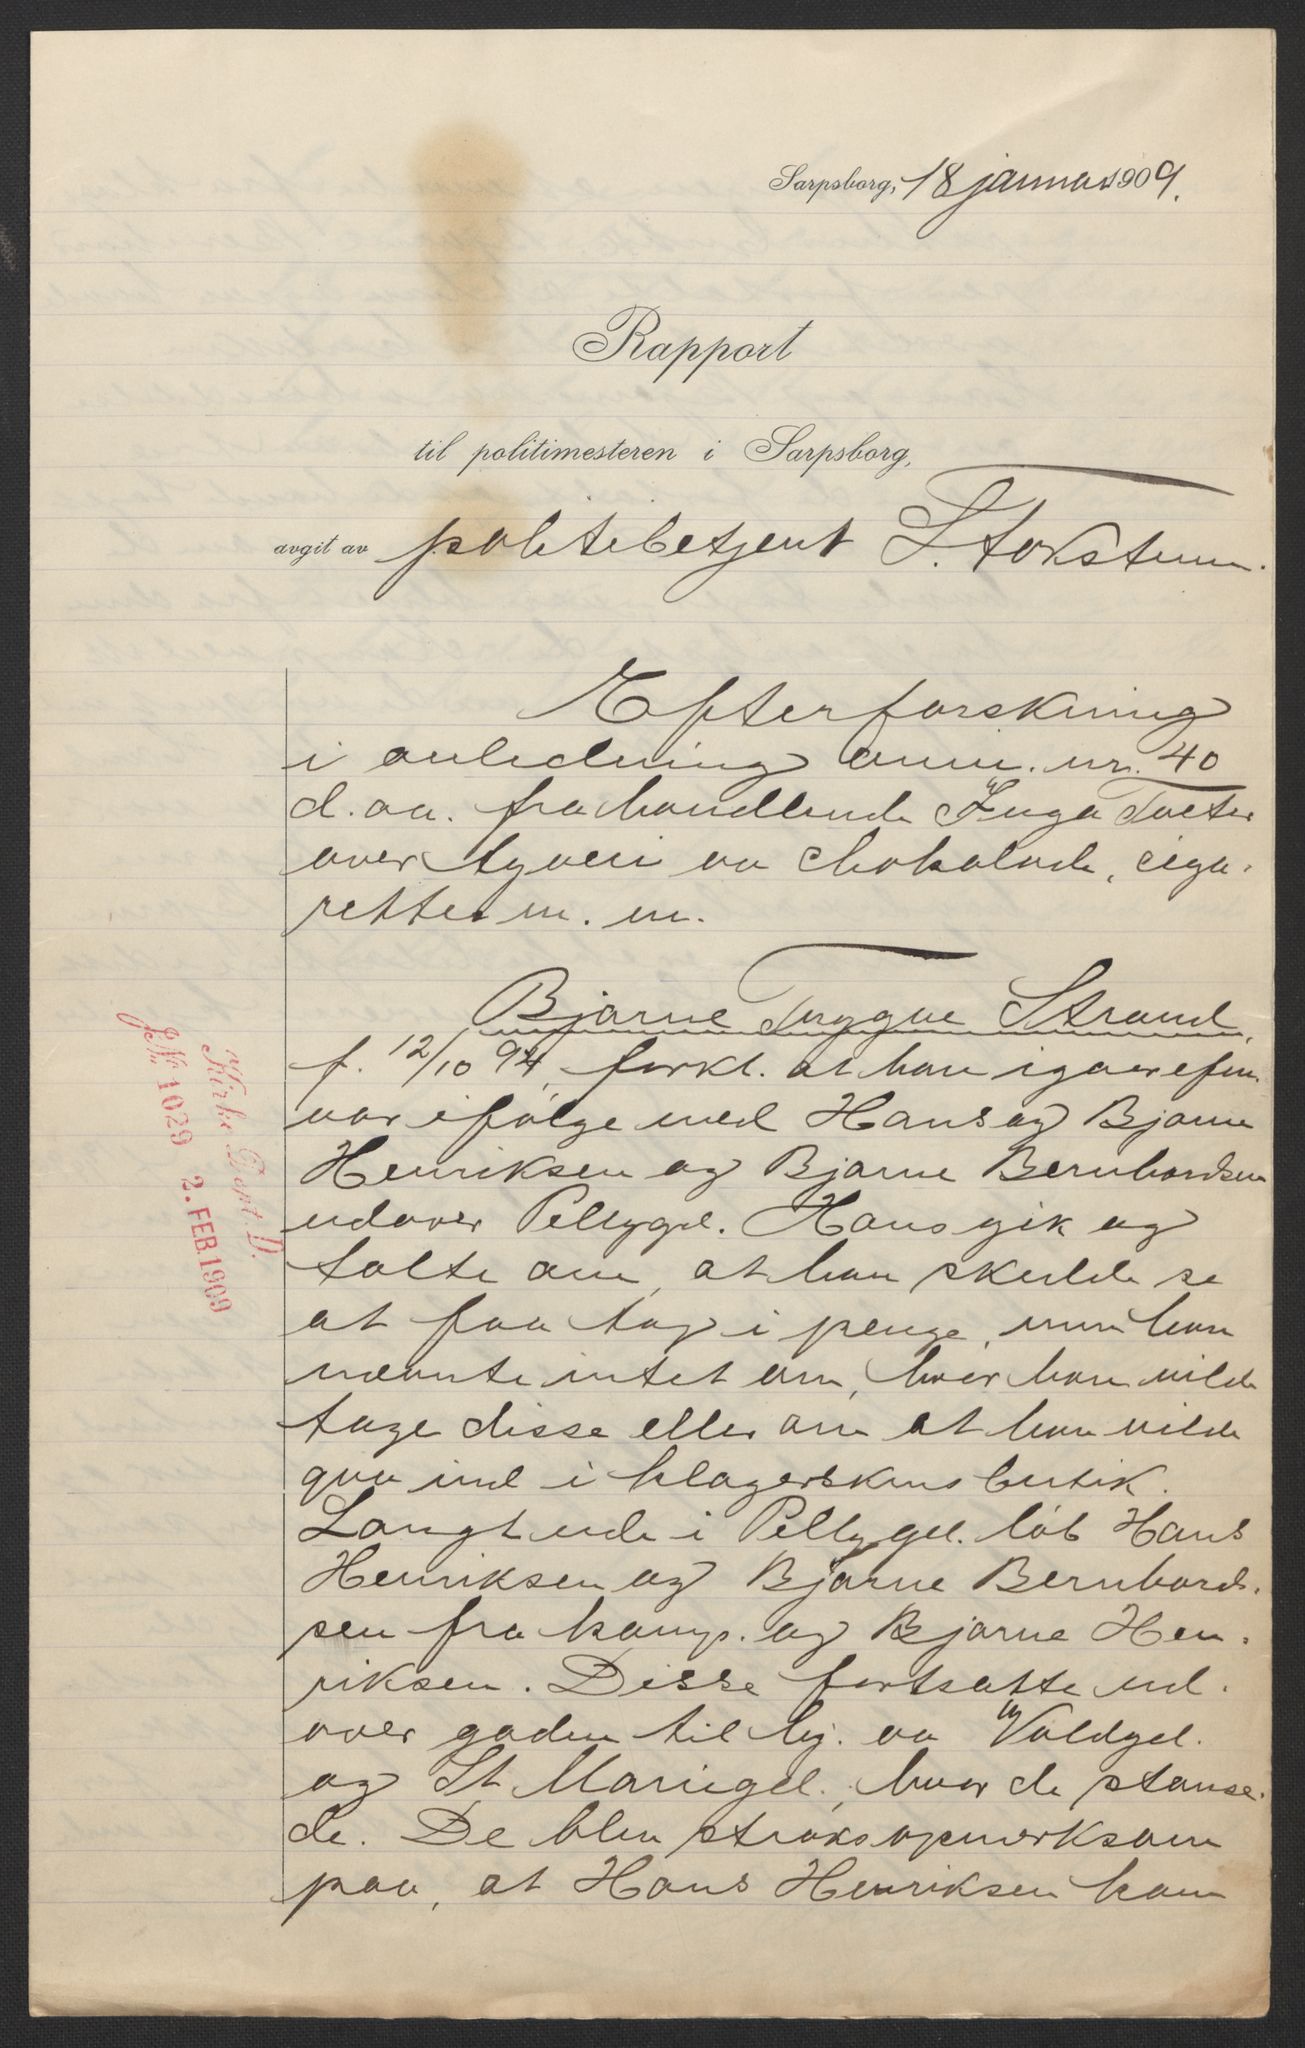 Sarpsborg, 18 januar 1909.
Rapport
til politimesteren i Sarpsborg,
avgit av politibetjent T. Stokstum.
Efterforskning
i anledning anm. nr. 40
d. aa. fra handlende Inga Tveter
over tyveri av chokolade, ciga-
retter m. m.
Bjarne Trygve Strand,
f. 12/10 94, forkl. at han igaar efm.
var ifølge med Hans og Bjarne
Henriksen og Bjarne Bernhardsen
udover Pellygd. Hans gik og
talte om, at han skulde se
at faa tag i penge, men han
nævnte intet om, hvor han vilde
tage disse eller om at han vilde
gaa ind i klagerskens butik.
Langt ude i Pellygd. løb Hans
Henriksen og Bjarne Bernhard-
sen fra komp. og Bjarne Hen-
riksen. Disse fortsatte ud-
over gaden til hj. av Voldgd.
og St. Mariegd., hvor de stanse-
de. De blev straks opmerksom
paa, at Hans Henriksen kom
Kirke Dept. D.
J№ 1029 2. FEB. 1909